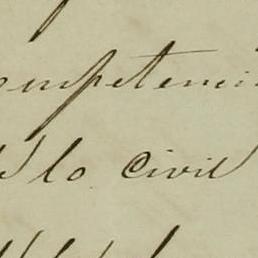 ompetenci
lo civil